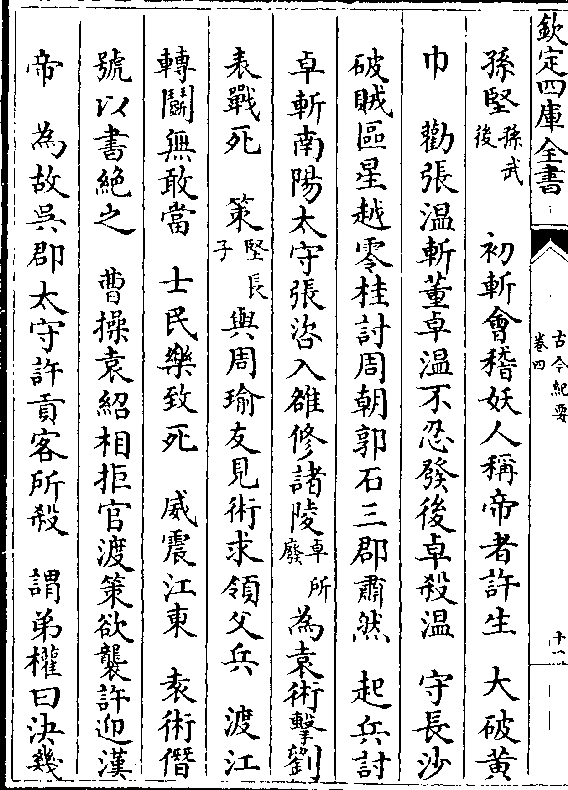 欽定四庫全書
古今紀要
卷四
孫堅孫武後　初斬會稽妖人稱帝者許生　大破黃
巾　勸張溫斬董卓溫不忍發後卓殺溫　守長沙
破賊區星越零桂討周朝郭石三郡肅然　起兵討
卓斬南陽太守張咨入雒修諸陵卓所廢為袁術擊劉
表戰死　策堅長子與周瑜友見術求領父兵　渡江
轉鬭無敢當　士民樂致死　威震江東　袁術僭
號以書絶之　曹操袁紹相拒官渡策欲襲許迎漢
帝　為故吳郡太守許貢客所殺　謂弟權曰決幾